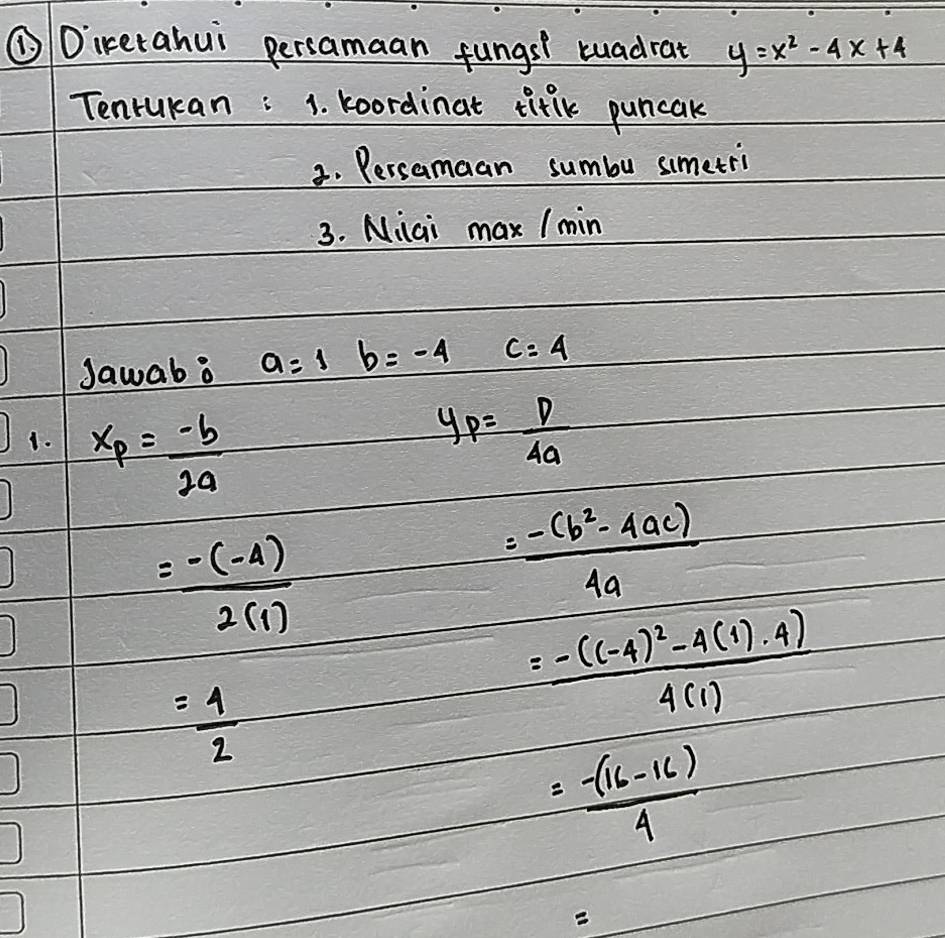 ① Diketahui persamaan fungsi kuadrat y = x² - 4x + 4
Tentukan : 1. koordinat titik puncak
2. Persamaan sumbu simetri
3. Nilai max / min
Jawab : a = 1 b = -4 c = 4
1. xp = -b/2a yp = D/4a
= -(-4)/2(1) = -(b² - 4ac)/4a
= 4/2 = -((-4)² - 4(1).4)/4(1)
= -(16-16)/4
=